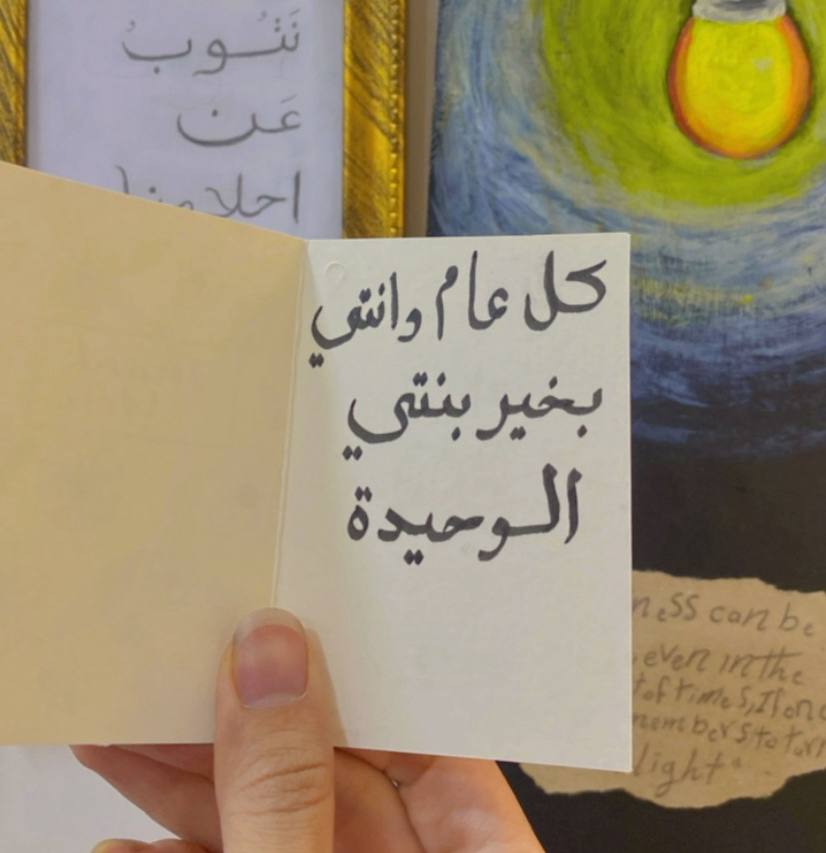 نَتُوبُ
عَن
احلامنا
كل عام وانتي
بخير بنتي
الوحيدة
ness can be
, even in the
t of times, If one
members to turn
light"